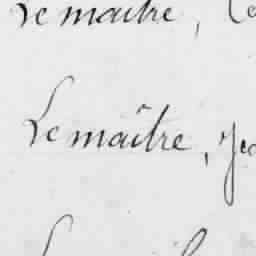 Lemaitre,
Lemaître, Jea